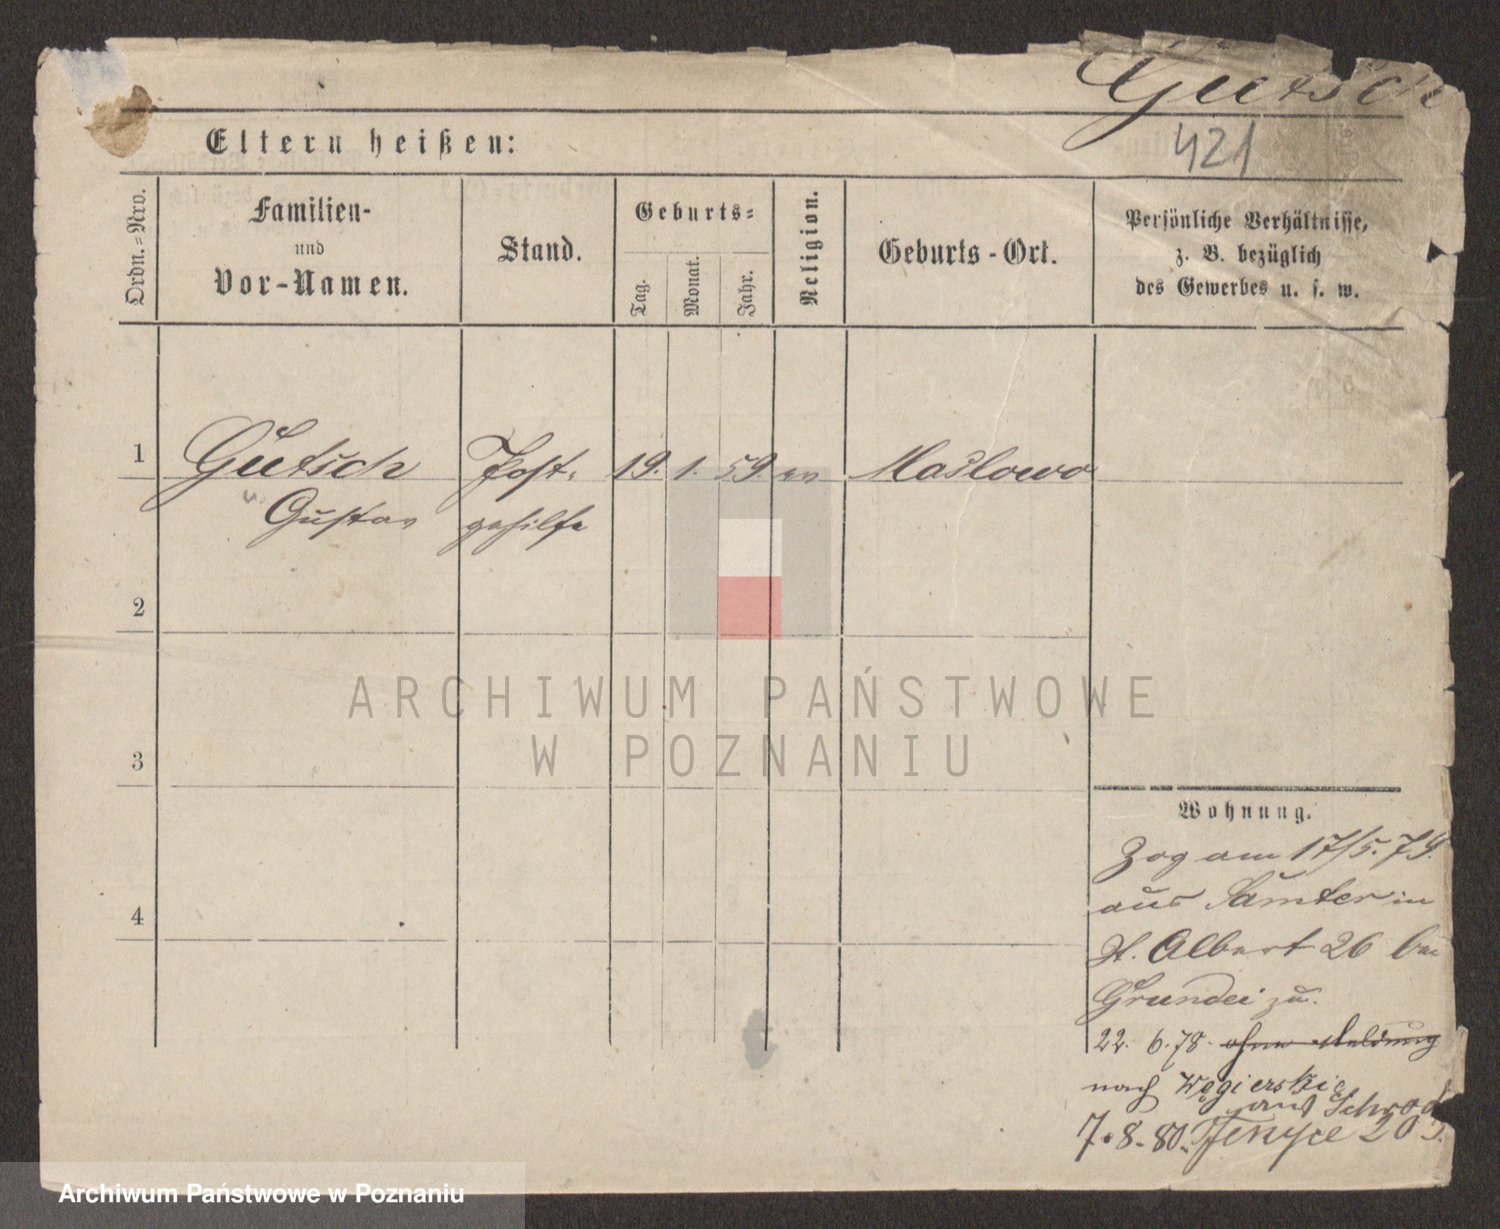 Gutsch
421
Eltern heißen:
Ordn.=Nro.
Familien-
und
Vor-Namen.
Stand.
Geburts=
Tag.
Monat.
Jahr.
Religion.
Geburts-Ort.
Persönliche Verhältnisse,
z. B. bezüglich
des Gewerbes u. s. w.
1 Gutsch Post- 19. 1. 59. ev Maslowo
Gustav gehilfe
2
3
4
Wohnung.
Zog am 17/5. 79.
aus Samter in
St. Albert 26 bei
Grundei zu.
22. 6. 78. ohne Meldung
nach Węgierskie
aus Schrod
7. 8. 80. 20
ARCHIWUM PAŃSTWOWE
W POZNANIU
Archiwum Państwowe w Poznaniu